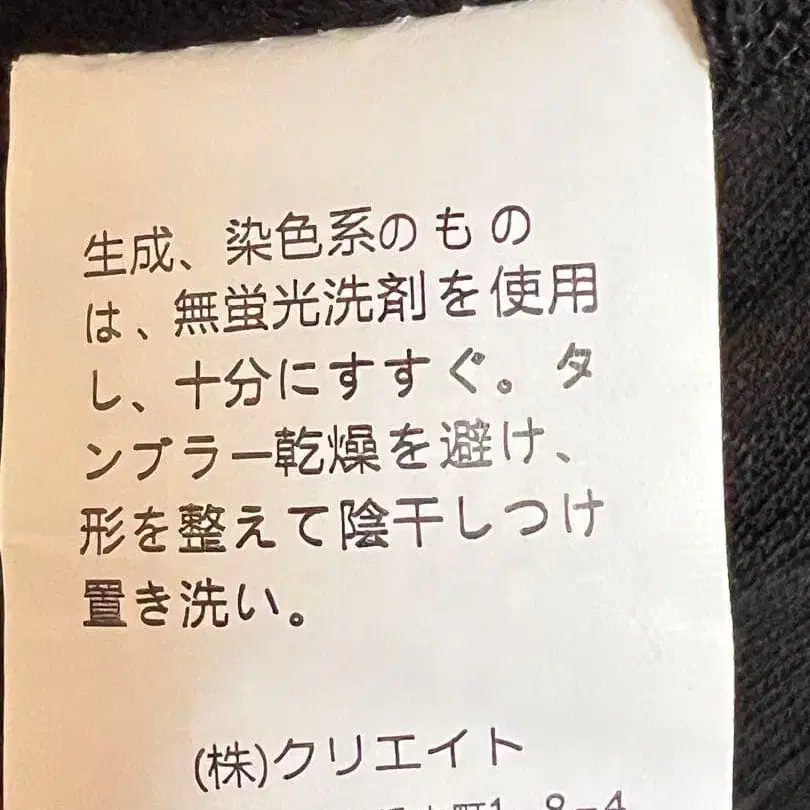 生成、染色系のもの
は、無蛍光洗剤を使用
し、十分にすすぐ。タ
ンブラー乾燥を避け、
形を整えて陰干しつけ
置き洗い。
(株)クリエイト
町1 9-4